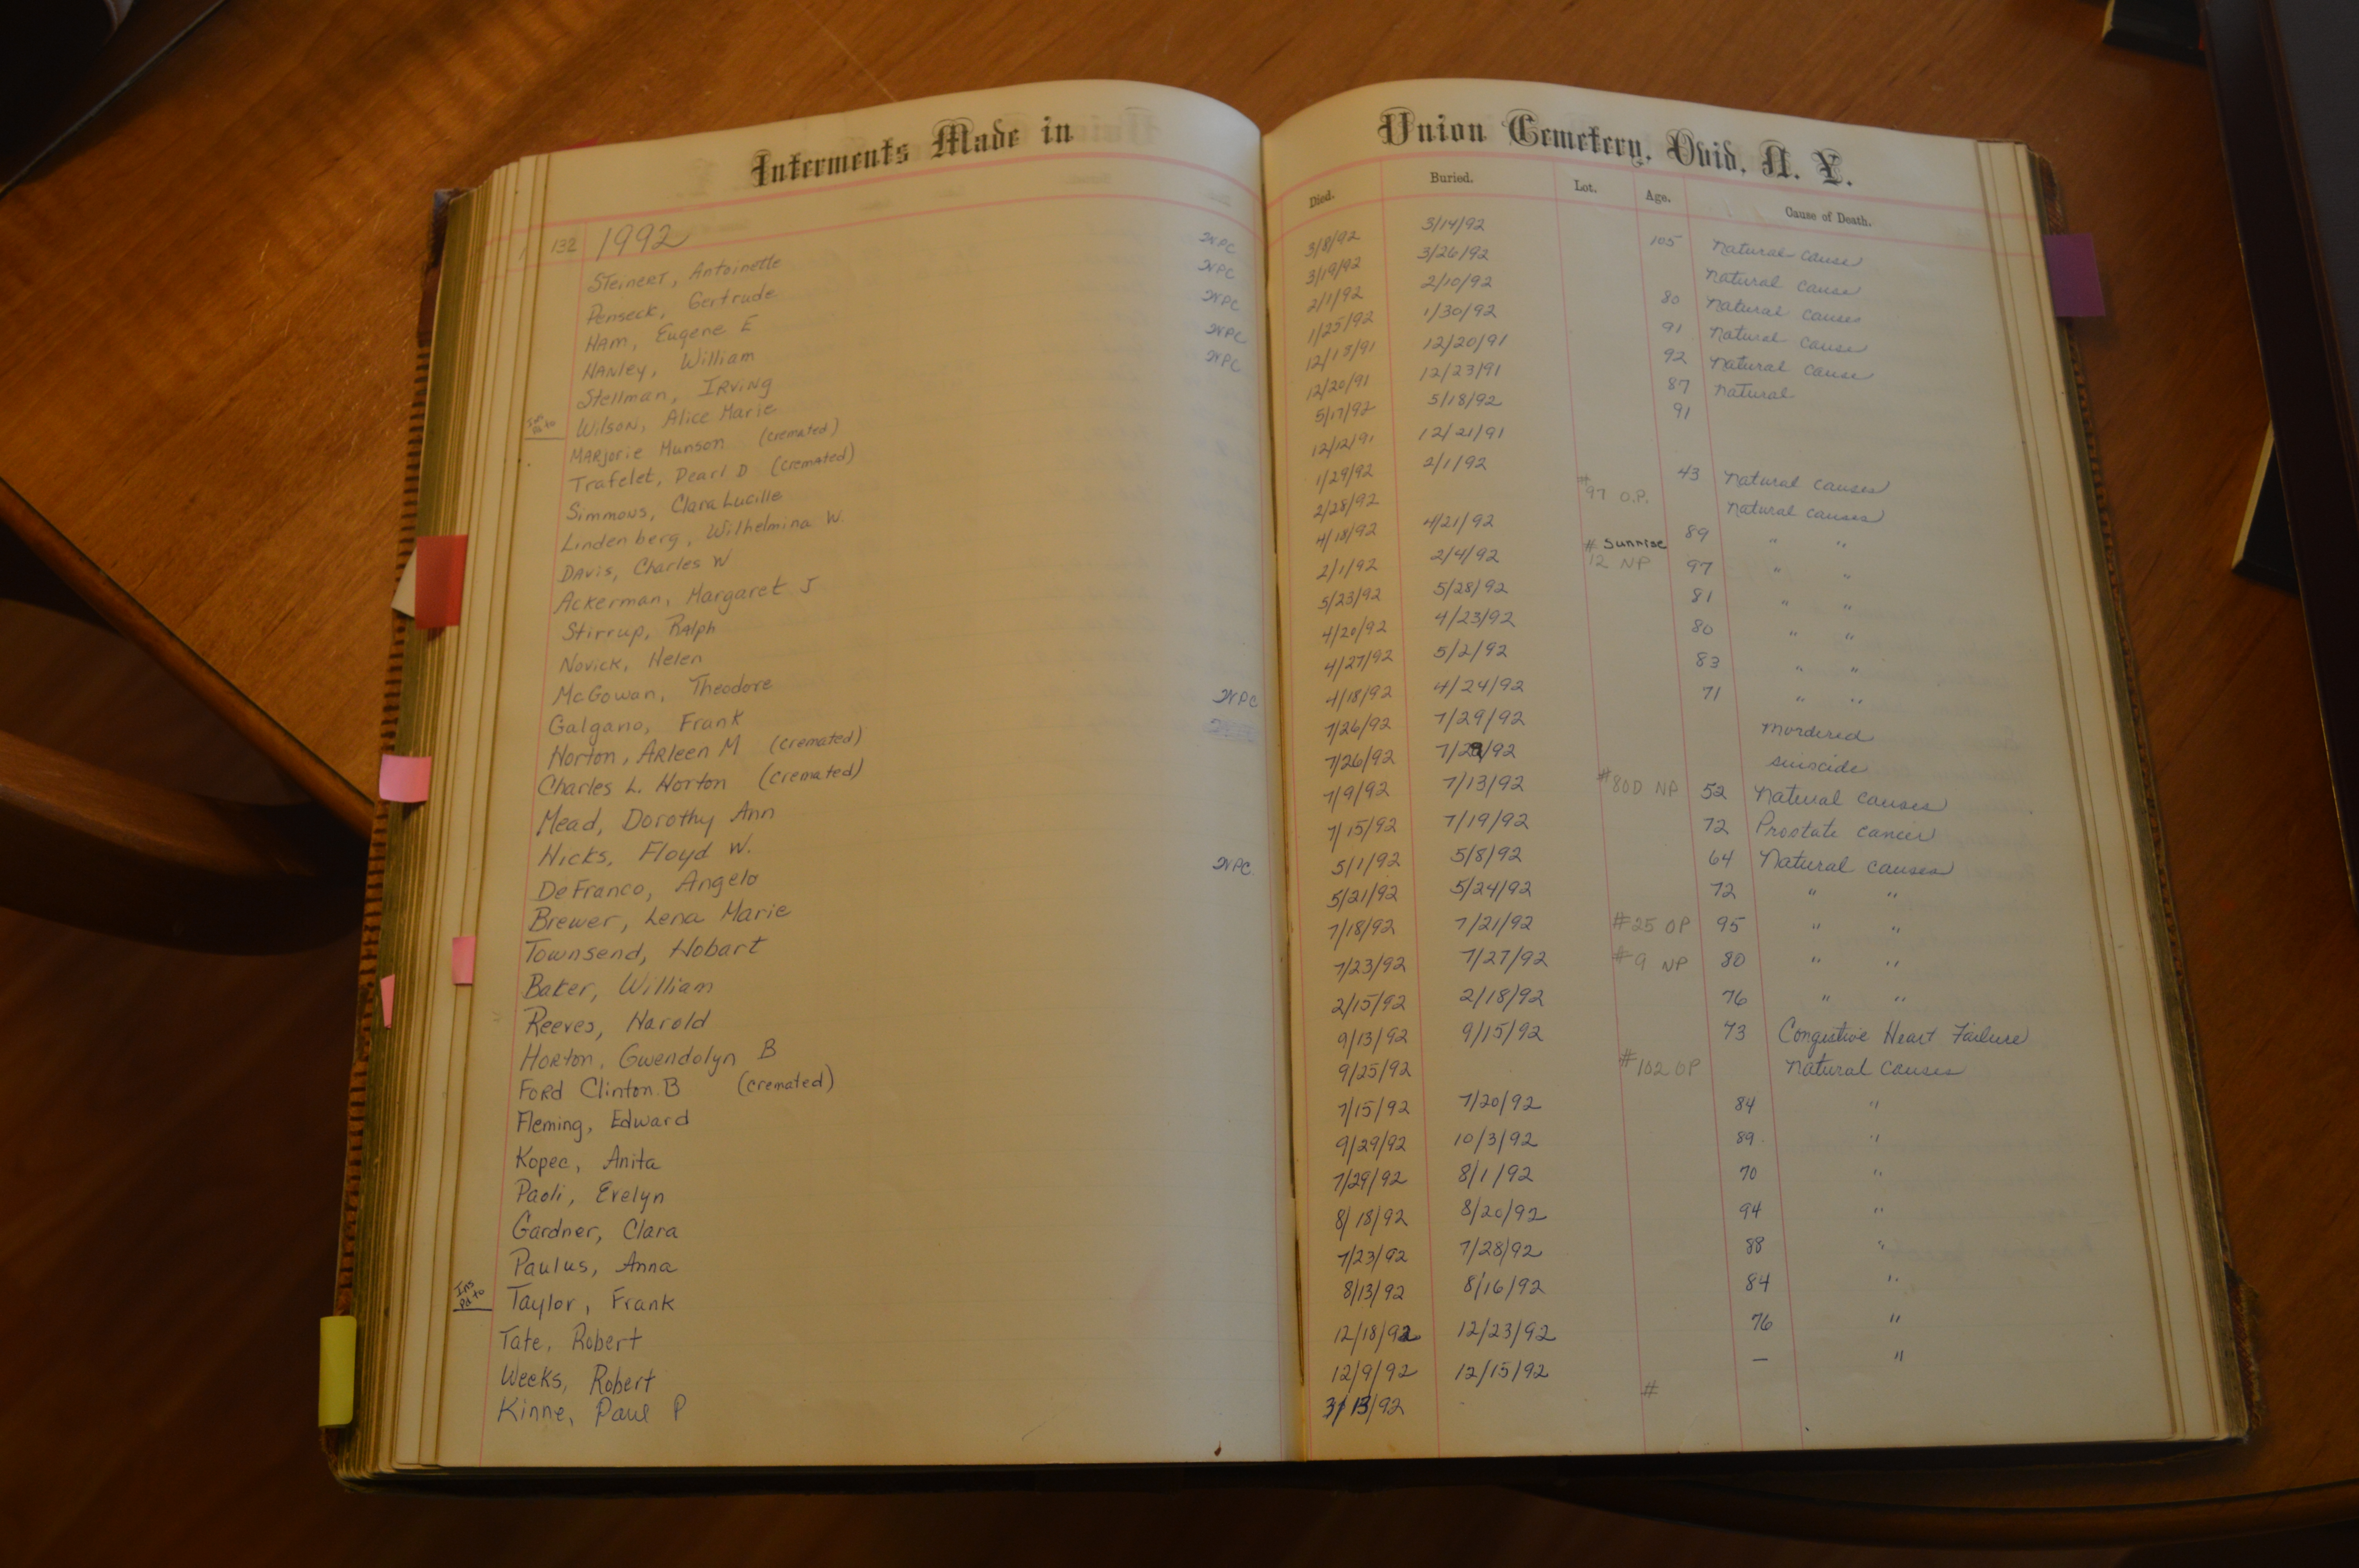 Interments Made in Union Cemetery, Ovid, N. Y.
Died. Buried. Lot. Age. Cause of Death.
132 1992
Steinert, Antoinette WPC 3/8/92 3/14/92 105 Natural cause
Penseck, Gertrude WPC 3/19/92 3/26/92 Natural cause
Ham, Eugene E WPC 2/1/92 2/10/92 80 Natural causes
Hanley, William WPC 1/25/92 1/30/92 91 Natural cause
Stellman, Irving WPC 12/15/91 12/20/91 92 Natural cause
Wilson, Alice Marie 12/20/91 12/23/91 87 Natural
Marjorie Munson (cremated) 5/17/92 5/18/92 91
Trafelet, Pearl D (cremated) 12/12/91 12/21/91
Simmons, Clara Lucille 1/29/92 2/1/92 43 Natural causes
Lindenberg, Wilhelmina W. 2/28/92 #97 O.P. Natural causes
Davis, Charles W 4/18/92 4/21/92 89 " "
Ackerman, Margaret J 2/1/92 2/4/92 # Sunrise 12 NP 97 " "
Stirrup, Ralph 5/23/92 5/28/92 81 " "
Novick, Helen 4/20/92 4/23/92 80 " "
McGowan, Theodore 4/27/92 5/2/92 83 " "
Galgano, Frank WPC 4/18/92 4/24/92 71 " "
Horton, Arleen M (cremated) 7/26/92 7/29/92 Mordered
Charles L. Horton (cremated) 7/26/92 7/29/92 suicide
Mead, Dorothy Ann 7/9/92 7/13/92 #80D NP 52 Natural causes
Hicks, Floyd W. 7/15/92 7/19/92 72 Prostate cancer
DeFranco, Angelo WPC 5/1/92 5/8/92 64 Natural causes
Brewer, Lena Marie 5/21/92 5/24/92 72 " "
Townsend, Hobart 7/18/92 7/21/92 #25 OP 95 " "
Baker, William 7/23/92 7/27/92 #9 NP 80 " "
Reeves, Harold 2/15/92 2/18/92 76 " "
Horton, Gwendolyn B 9/13/92 9/15/92 73 Congestive Heart Failure
Ford Clinton B (cremated) 9/25/92 #102 OP Natural causes
Fleming, Edward 7/15/92 7/20/92 84 "
Kopec, Anita 9/29/92 10/3/92 89 "
Paoli, Evelyn 7/29/92 8/1/92 70 "
Gardner, Clara 8/18/92 8/20/92 94 "
Paulus, Anna 7/23/92 7/28/92 88 "
Ins Pd to Taylor, Frank 8/13/92 8/16/92 84 "
Tate, Robert 12/18/92 12/23/92 76 "
Weeks, Robert 12/9/92 12/15/92 — "
Kinne, Paul P 3/13/92 #